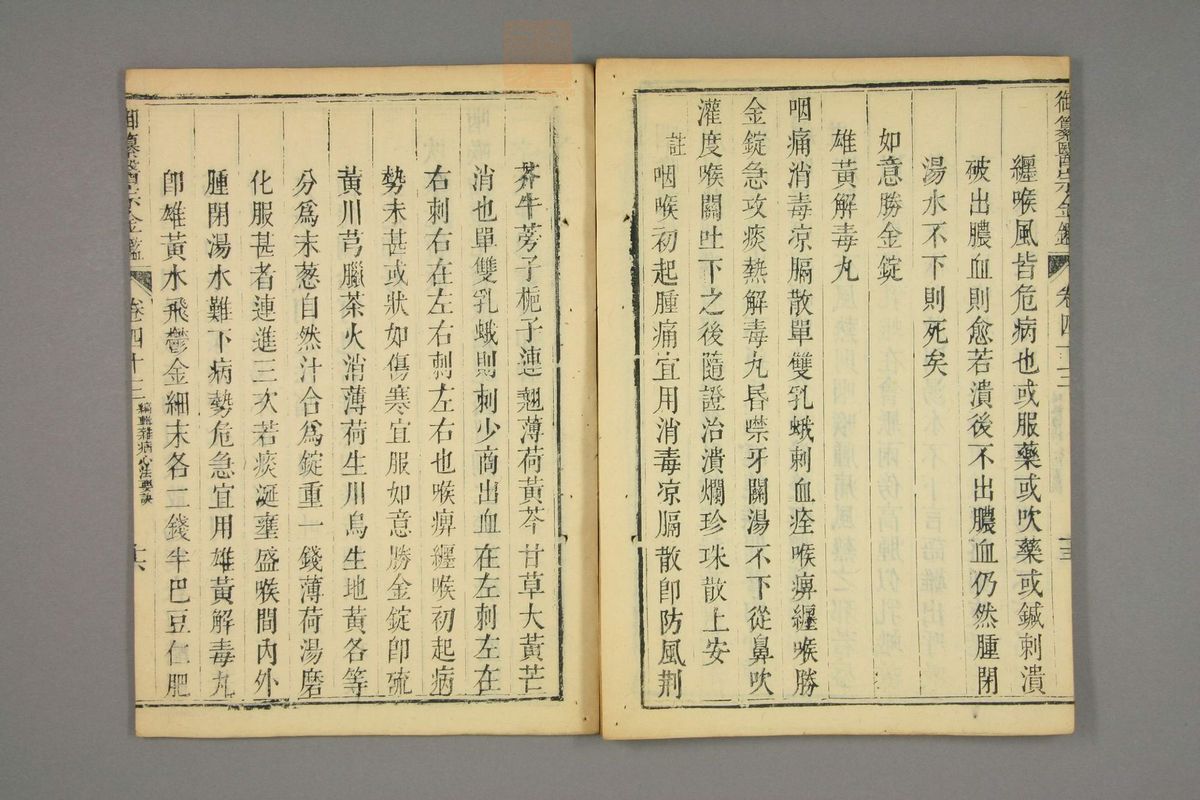 御纂醫宗金鑑 卷四十三
纏喉風皆危病也或服藥或吹藥或鍼刺潰
破出膿血則愈若潰後不出膿血仍然腫閉
湯水不下則死矣
如意勝金錠
雄黃解毒丸
咽痛消毒凉膈散單雙乳蛾刺血痊喉痹纏喉勝
金錠急攻痰熱解毒丸昏噤牙關湯不下從鼻吹
灌度喉關吐下之後隨證治潰爛珍珠散上安
註咽喉初起腫痛宜用消毒凉膈散卽防風荆
芥牛蒡子梔子連翹薄荷黃芩甘草大黃芒
消也單雙乳蛾則刺少商出血在左刺左在
右刺右在左右刺左右也喉痹纏喉初起病
勢未甚或狀如傷寒宜服如意勝金錠卽硫
黃川芎臘茶火消薄荷生川烏生地黃各等
分爲末葱自然汁合爲錠重一錢薄荷湯磨
化服甚者連進三次若痰涎壅盛喉間內外
腫閉湯水難下病勢危急宜用雄黃解毒丸
卽雄黃水飛鬱金細末各二錢半巴豆仁肥
御纂醫宗金鑑 卷四十三 編輯雜病心法要訣